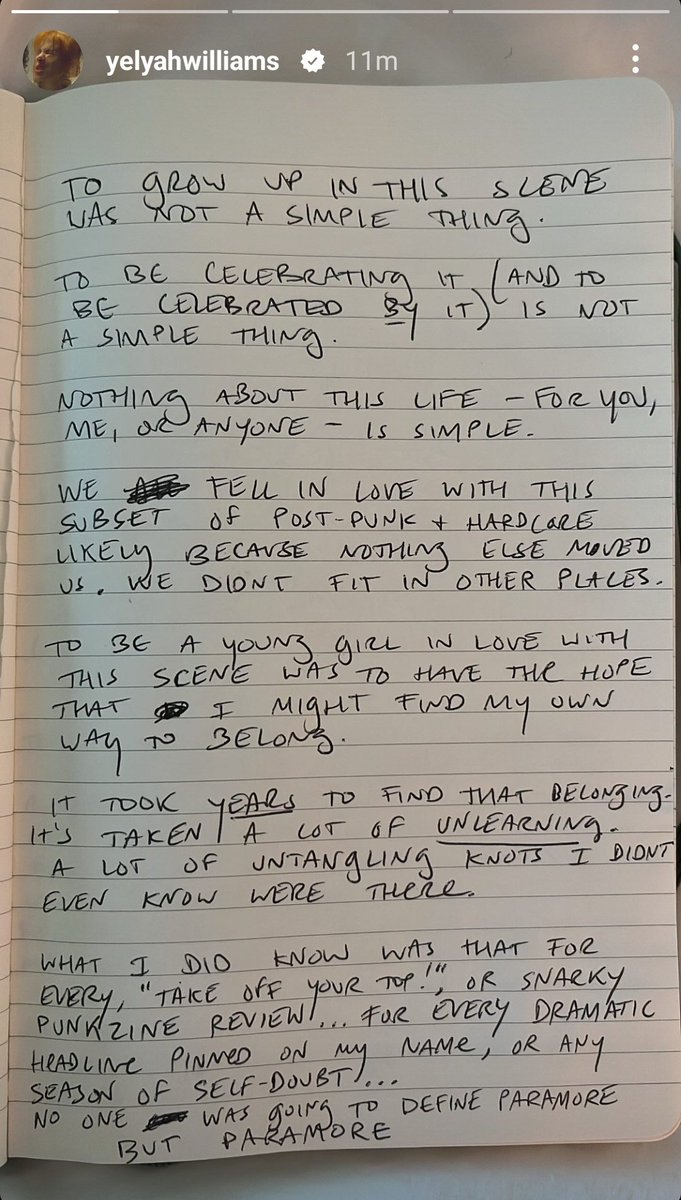 yelyahwilliams 11m
TO GROW UP IN THIS SCENE
WAS NOT A SIMPLE THING.
TO BE CELEBRATING IT (AND TO
BE CELEBRATED BY IT) IS NOT
A SIMPLE THING.
NOTHING ABOUT THIS LIFE – FOR YOU,
ME, OR ANYONE – IS SIMPLE.
WE FELL IN LOVE WITH THIS
SUBSET OF POST-PUNK + HARDCORE
LIKELY BECAUSE NOTHING ELSE MOVED
US. WE DIDNT FIT IN OTHER PLACES.
TO BE A YOUNG GIRL IN LOVE WITH
THIS SCENE WAS TO HAVE THE HOPE
THAT I MIGHT FIND MY OWN
WAY TO BELONG.
IT TOOK YEARS TO FIND THAT BELONGING.
IT'S TAKEN A LOT OF UNLEARNING.
A LOT OF UNTANGLING KNOTS I DIDNT
EVEN KNOW WERE THERE.
WHAT I DID KNOW WAS THAT FOR
EVERY, "TAKE OFF YOUR TOP!", OR SNARKY
PUNKZINE REVIEW... FOR EVERY DRAMATIC
HEADLINE PINNED ON MY NAME, OR ANY
SEASON OF SELF-DOUBT...
NO ONE WAS GOING TO DEFINE PARAMORE
BUT PARAMORE